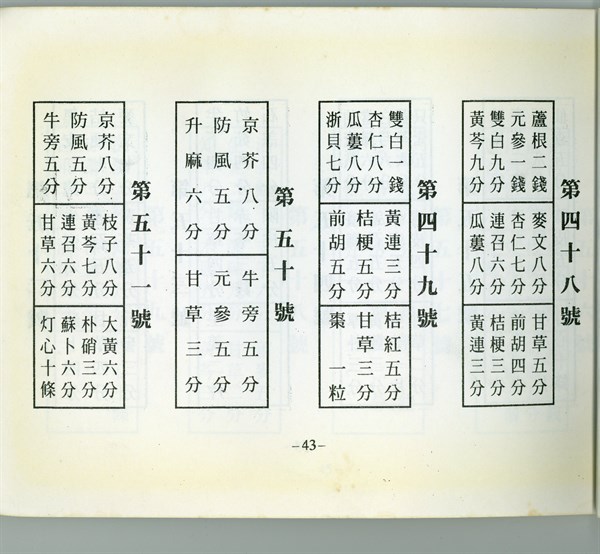 第四十八號
蘆根二錢
元參一錢
雙白九分
黃芩九分
麥文八分
杏仁七分
連召六分
瓜蔞八分
甘草五分
前胡四分
桔梗三分
黃連三分
第四十九號
雙白一錢
杏仁八分
瓜蔞八分
浙貝七分
黃連三分
桔梗五分
前胡五分
桔紅五分
甘草三分
棗 一粒
第五十號
京芥八分
防風五分
升麻六分
牛旁五分
元參五分
甘草三分
第五十一號
京芥八分
防風五分
牛旁五分
枝子八分
黃芩七分
連召六分
甘草六分
大黃六分
朴硝三分
蘇卜六分
灯心十條
-43-